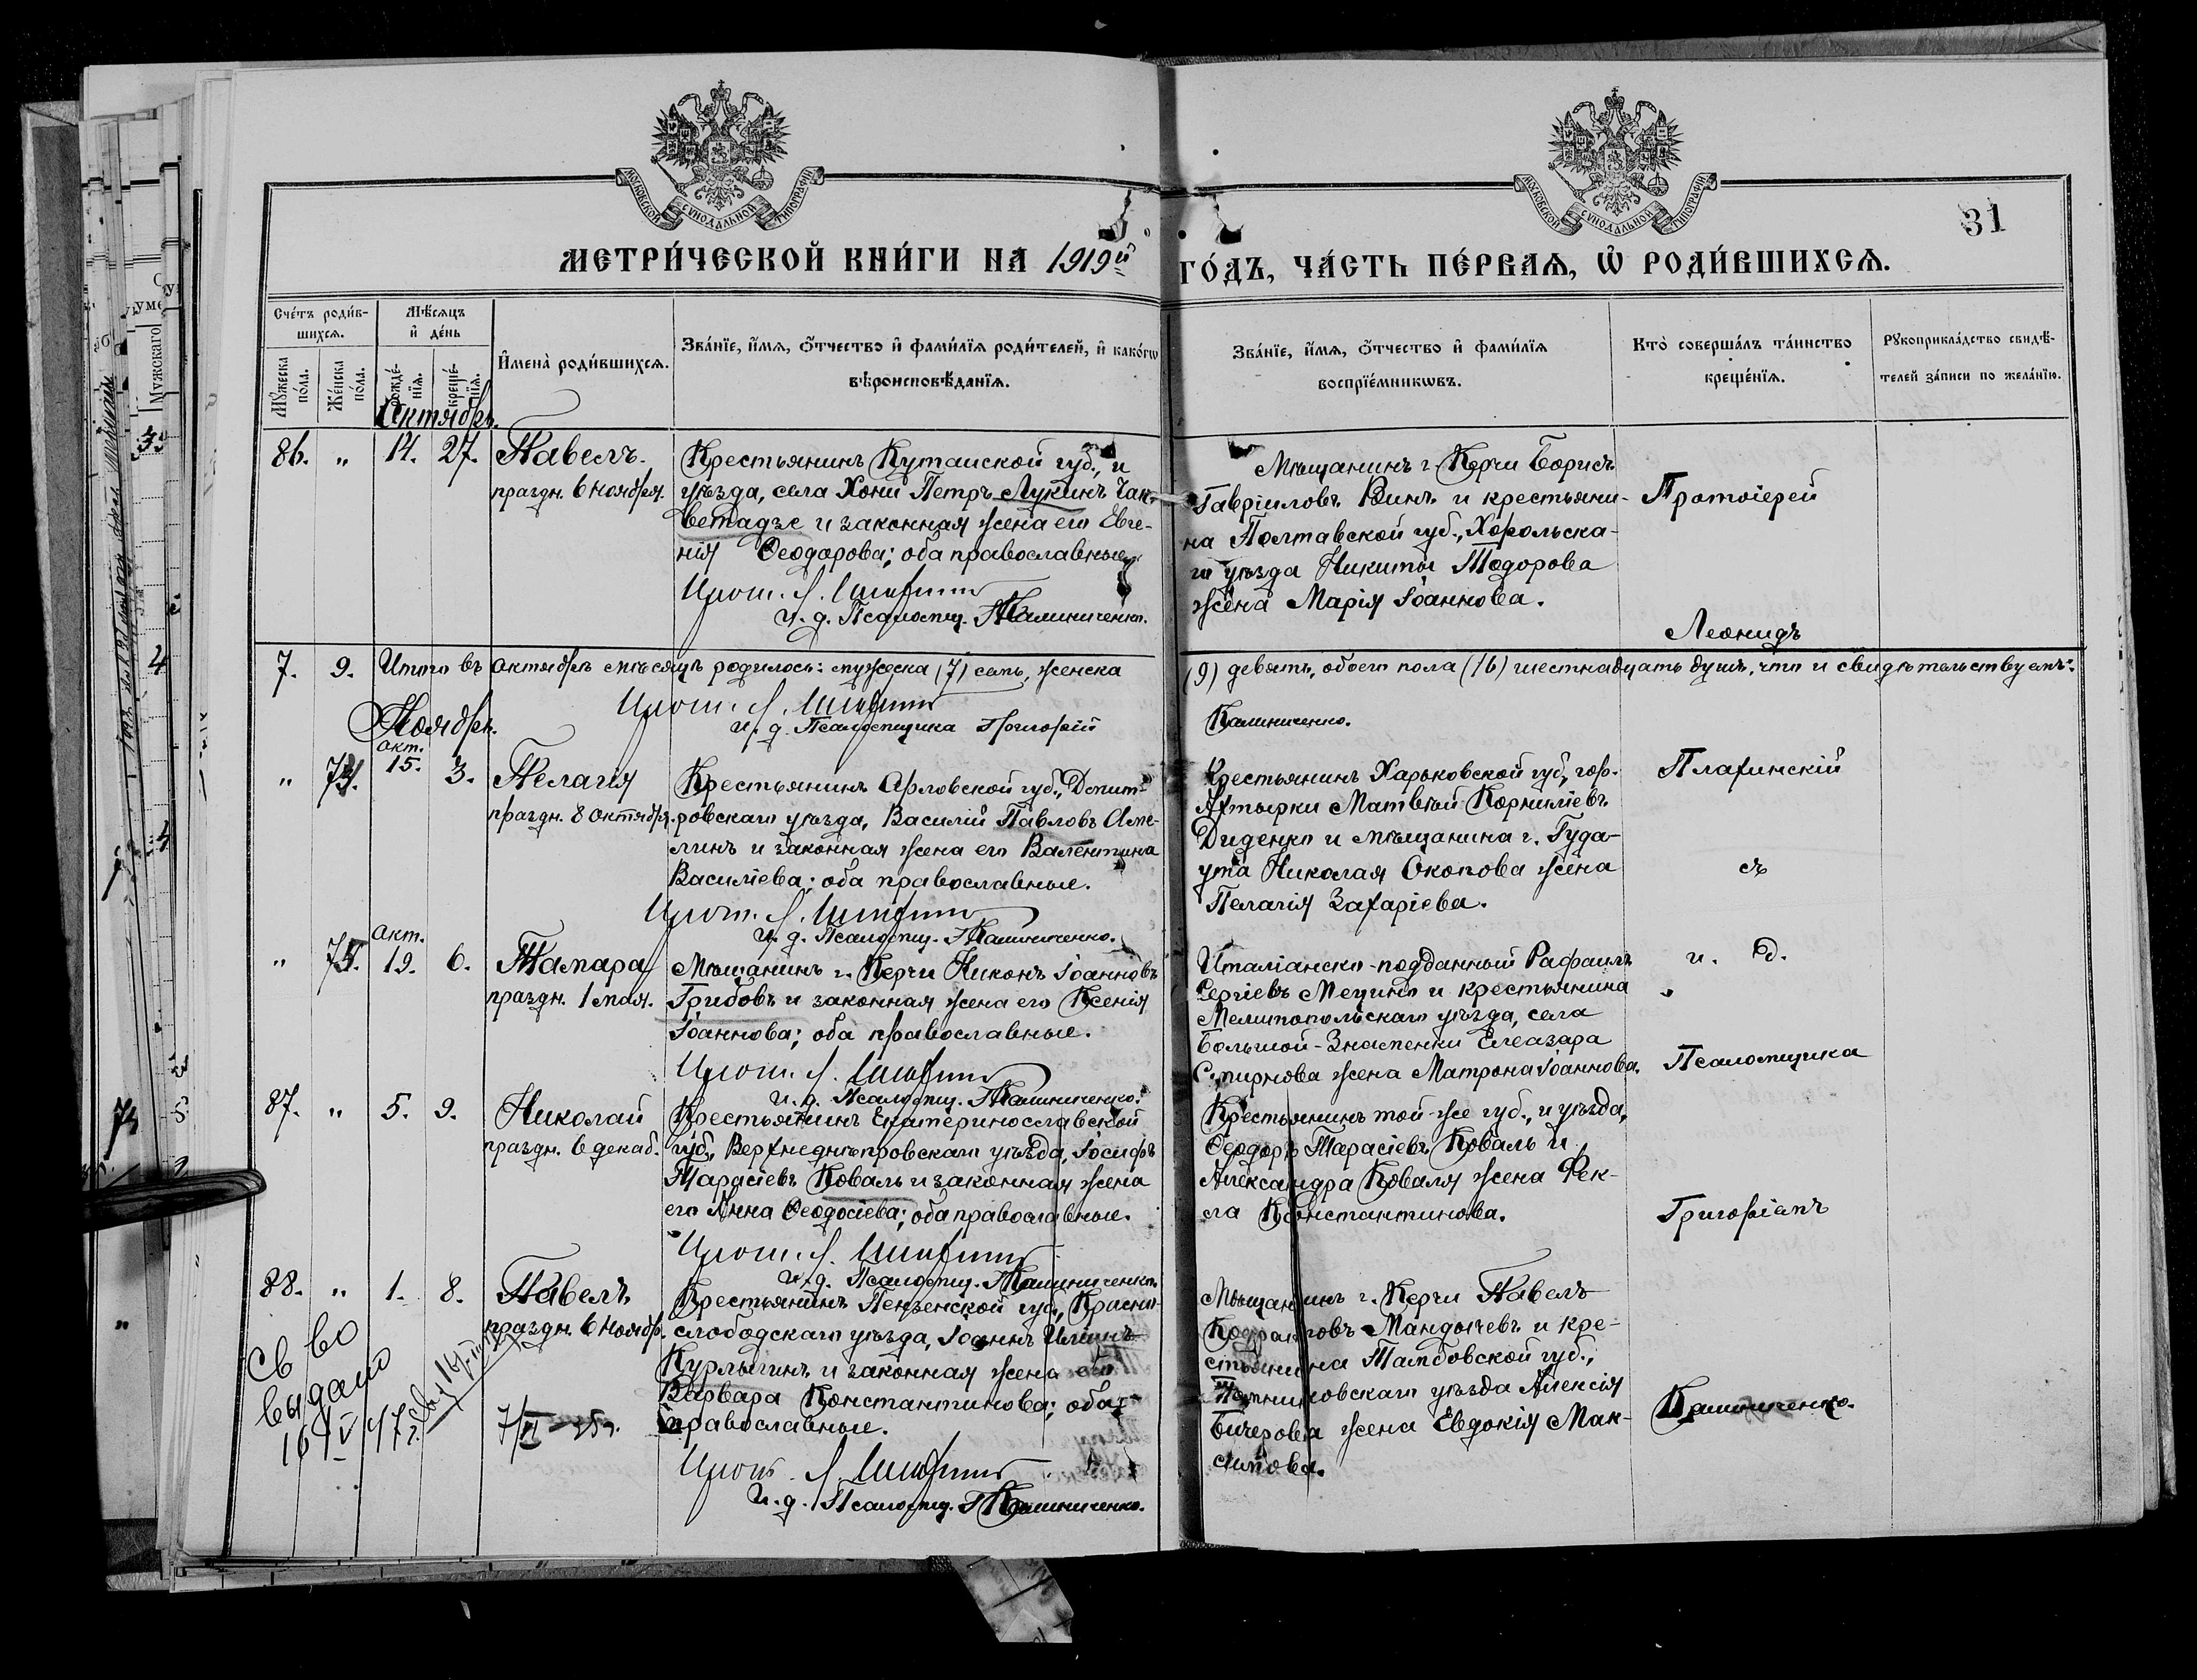 МОСКОВСКОЙ СѴНОДАЛЬНОЙ ТИПОГРАФІИ
МОСКОВСКОЙ СѴНОДАЛЬНОЙ ТИПОГРАФІИ
31
МЕТРИ́ЧЕСКОЙ КНИ́ГИ НА 1919й ГО́ДЪ, ЧА́СТЬ ПЕ́РВАЯ, Ѡ҆ РОДИ́ВШИХСЯ.
Сче́тъ роди́в-
шихся.
Мѣ́сяцъ
и҆ де́нь
Мꙋ́жеска
по́ла.
Же́нска
по́ла.
рожде́-
нїя.
креще́-
нїя.
И҆мена̀ роди́вшихся.
Зва́нїе, и҆́мя, ѻ҆́тчество и҆ фами́лїя роди́телей, и҆ како́гѡ
вѣроисповѣ́данїя.
Зва́нїе, и҆́мя, ѻ҆́тчество и҆ фами́лїя
воспрїе́мникѡвъ.
Кто̀ соверша́лъ та́инство
креще́нїя.
Рꙋкоприкла́дство свидѣ́-
телей за́писи по жела́нїю.
Октябрь.
86. " 14. 27. Павелъ.
праздн. 6 ноября.
Крестьянинъ Кутаиской губ., и
уѣзда, села Хони Петръ Лукинъ Чак-
ветадзе и законная жена его Евге-
нія Ѳеодорова; оба православные.
Прот. Л.
и. д. Псаломщ. Г Калиниченко.
Мѣщанинъ г. Керчи Борисъ
Гавріиловъ Винъ и крестьяни-
на Полтавской губ., Хорольска-
го уѣзда Никиты Тодорова
жена Марія Іоаннова.
Протоіерей
Леонидъ
7. 9. Итого въ октябрѣ мѣсяцѣ родилось: мужеска (7) семь, женска (9) девять, обоего пола (16) шестнадцать душъ, что и свидѣтельствуемъ:
Прот. Л.
и. д. Псаломщика Григорій Калиниченко.
Ноябрь.
" окт. 15. 3. Пелагія
праздн. 8 октября.
Крестьянинъ Орловской губ., Дмит-
ровскаго уѣзда, Василій Павловъ Аме-
линъ и законная жена его Валентина
Василіева; оба православные.
Прот. Л.
и. д. Псаломщ. Г Калиниченко.
Крестьянинъ Харьковской губ., гор.
Ахтырки Матвѣй Корниліевъ
Диденко и мѣщанина г. Гуда-
ута Николая Окопова жена
Пелагія Захаріева.
съ
" окт. 19. 6. Тамара
праздн. 1 мая.
Мѣщанинъ г. Керчи Никонъ Іоанновъ
Грибовъ и законная жена его Ксенія
Іоаннова; оба православные.
Прот. Л.
и. д. Псаломщ. Г Калиниченко.
Италіанско-подданный Рафаилъ
Сергіевъ Мецино и крестьянина
Мелитопольскаго уѣзда, села
Большой-Знаменки Елеазара
Смирнова жена Матрона Іоаннова.
и. д.
Псаломщика
87. " 5. 9. Николай
праздн. 6 декаб.
Крестьянинъ Екатеринославской
губ., Верхнеднѣпровскаго уѣзда, Іосифъ
Тарасіевъ Коваль и законная жена
его Анна Ѳеодосіева; оба православные.
Прот. Л.
и. д. Псаломщ. Г Калиниченко.
Крестьянинъ той-же губ., и уѣзда,
Ѳеодоръ Тарасіевъ Коваль и
Александра Коваля жена Фек-
ла Константинова.
Григоріемъ
88. " 1. 8. Павелъ
праздн. 6 ноябр.
Крестьянинъ Пензенской губ., Красно-
слободскаго уѣзда, Іоаннъ Иліинъ
Курлыгинъ и законная жена его
Варвара Константинова; оба
православные.
Прот. Л.
и. д. Псаломщ. Г Калиниченко.
Мѣщанинъ г. Керчи Павелъ
Мандычевъ и кре-
стьянина Тамбовской губ.,
уѣзда Алексія
Бичерова жена Евдокія Мак-
симова.
Калиниченко.
Св во
выдано
7/VI-25г.